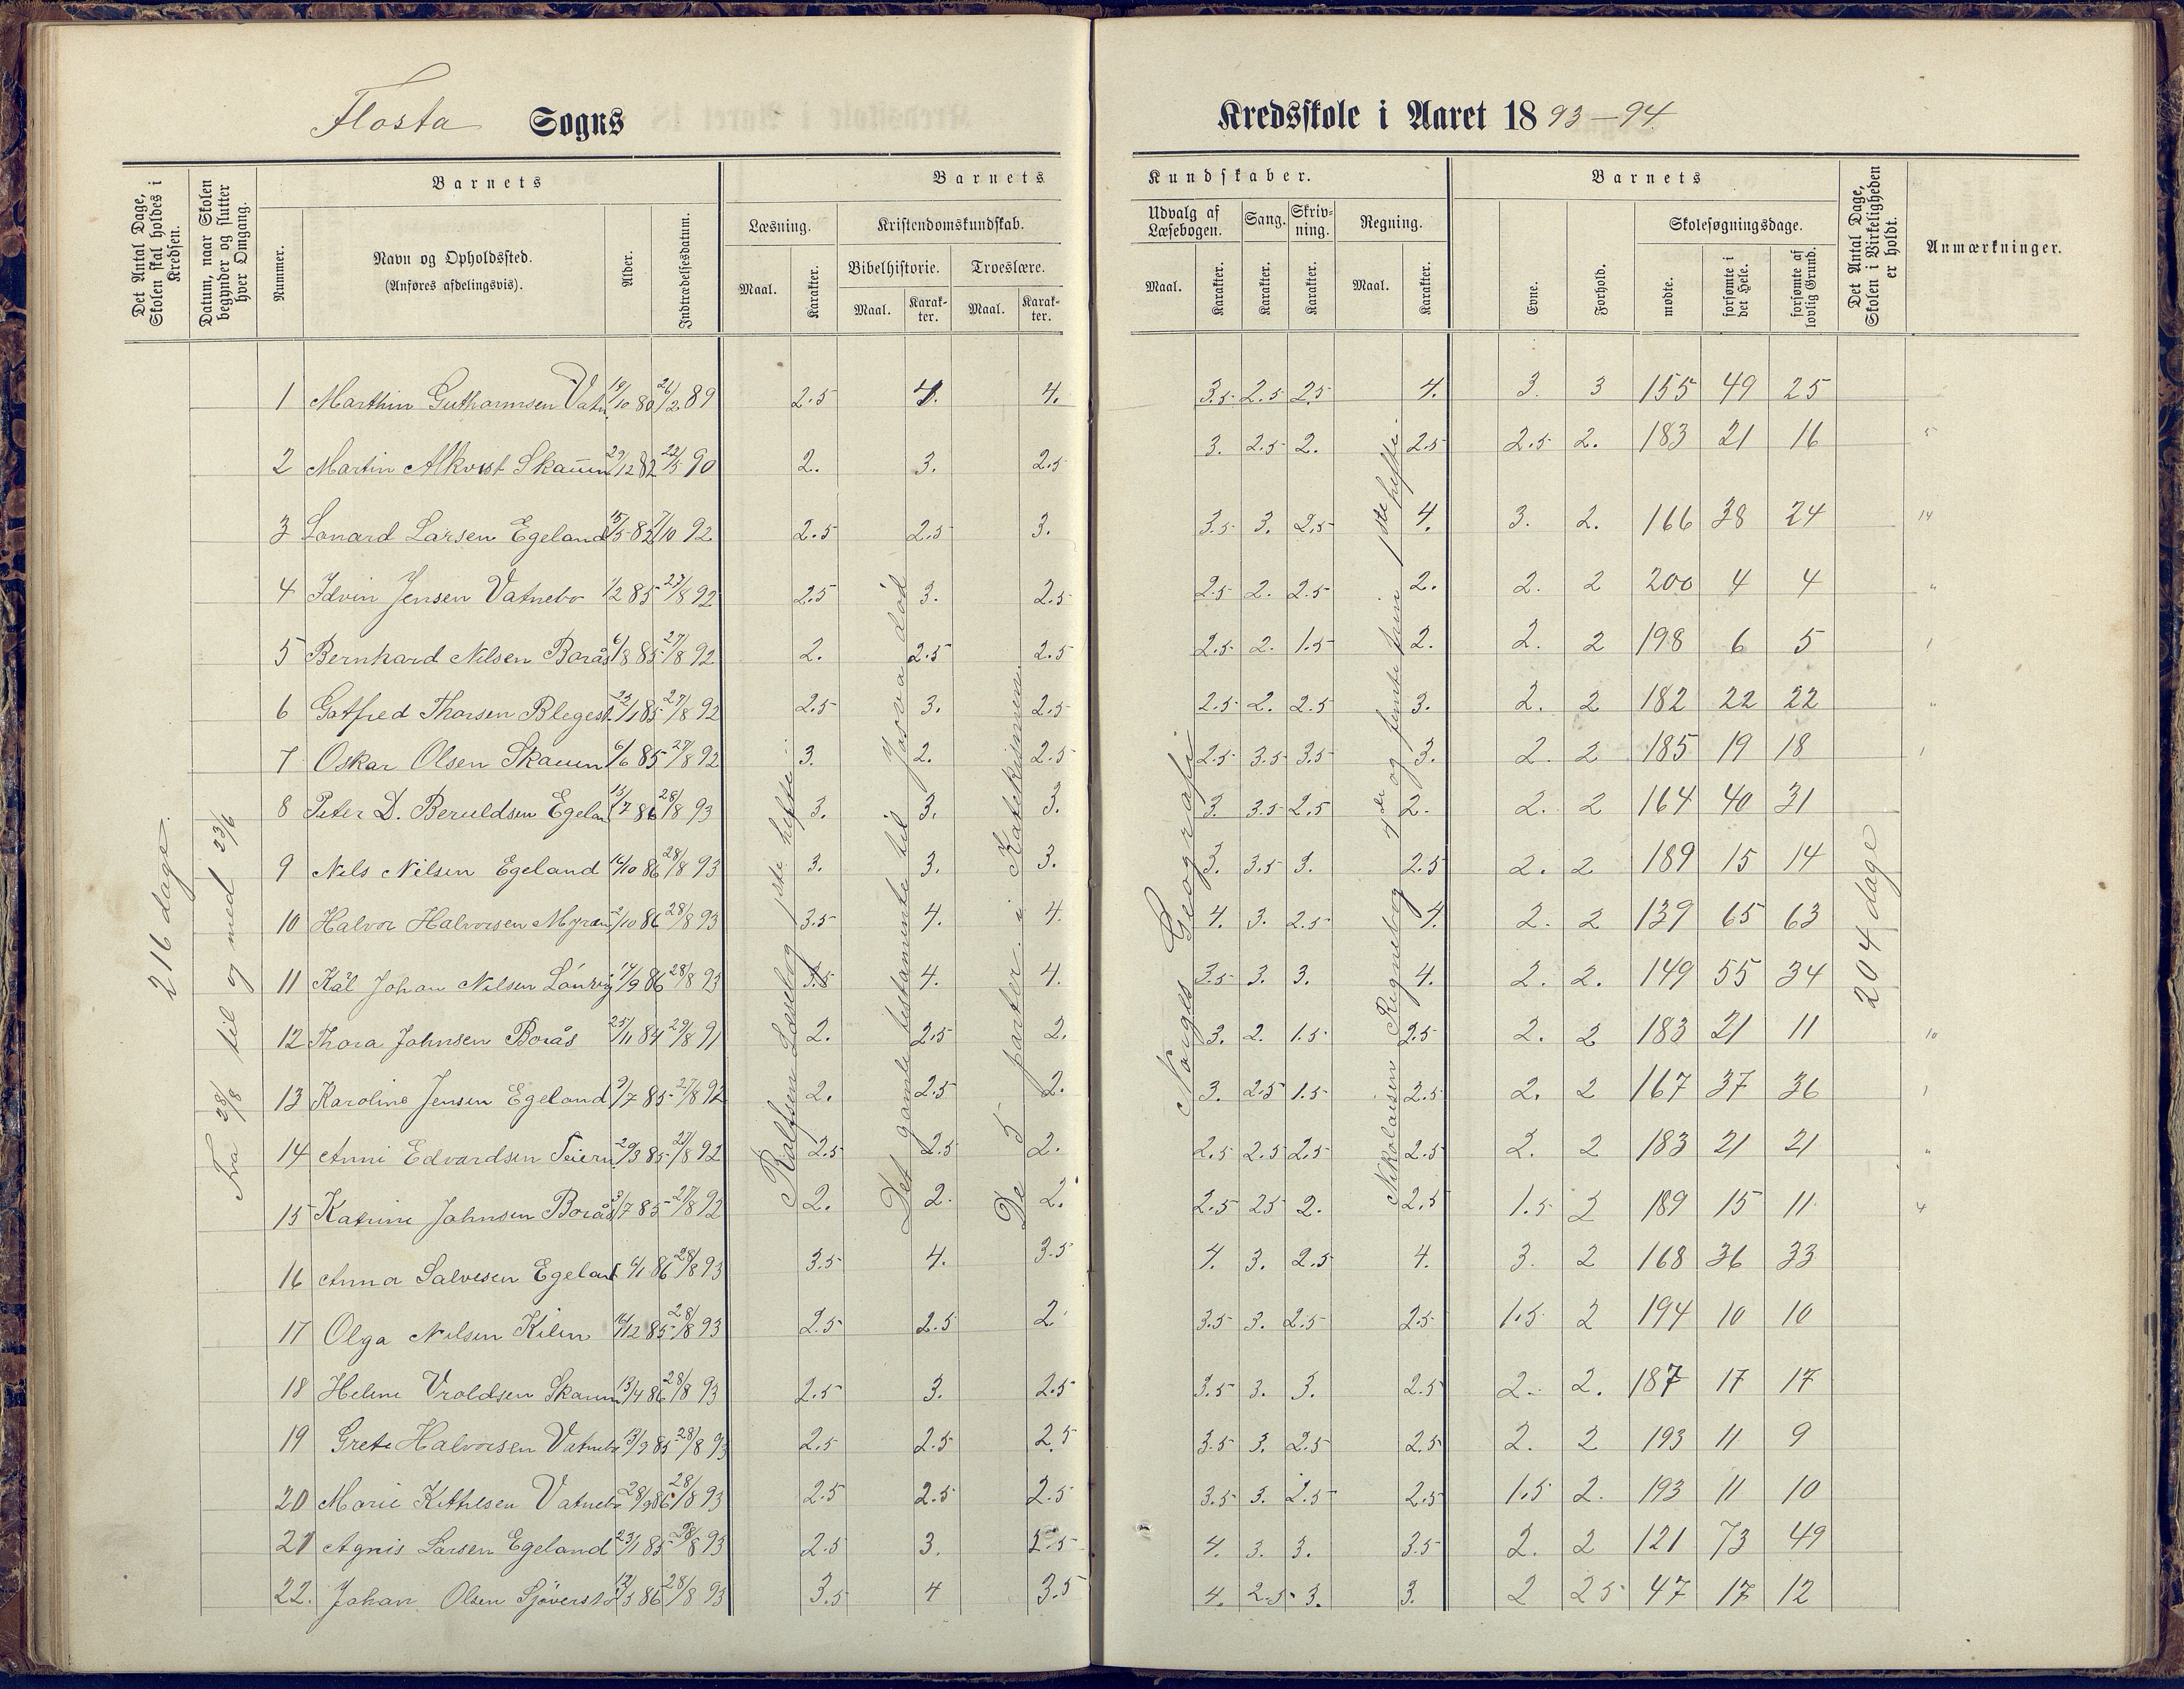 Flosta Sogns Kredsskole i Aaret 1893–94
Det Antal Dage, Skolen skal holdes i Kredsen.
Datum, naar Skolen begynder og slutter hver Omgang.
Barnets
Nummer.
Navn og Opholdssted.
(Anføres afdelingsvis).
Alder.
Indtrædelsesdatum.
Barnets Kundskaber.
Læsning.
Maal. Karakter.
Kristendomskundskab.
Bibelhistorie. Troeslære.
Maal. Karakter. Maal. Karakter.
Udvalg af Læsebogen. Sang. Skrivning. Regning.
Maal. Karakter. Karakter. Karakter. Maal. Karakter.
Barnets
Evne. Forhold.
Skolesøgningsdage.
mødte. forsømte i det Hele. forsømte af lovlig Grund.
Det Antal Dage, Skolen i Virkeligheden er holdt.
Anmærkninger.
216 dage.
Fra 28/8 til og med 23/6
Rolfsen Læsebog 1ste hefte.
Det gamle testamente til Josva død
De 5 parter i Katekismen.
Norges Geografi
Nikolaisen Regnebog 4de og femte trin. 1ste hefte.
204 dage
1 Marthin Guthormsen Vatn. 19/10 80 26/2 89 2.5 4. 4. 3.5 2.5 2.5 4. 3. 3 155 49 25
2 Martin Alkvist Skauen 29/12 82 22/5 90 2. 3. 2.5 3. 2.5 2. 2.5 2.5 2. 183 21 16 5
3 Lonard Larsen Egeland 15/5 82 7/10 92 2.5 2.5 3. 3.5 3. 2.5 4. 3. 2. 166 38 24 14
4 Edvin Jensen Vatnebo 1/2 85 27/8 92 2.5 3. 2.5 2.5 2. 2.5 2. 2. 2 200 4 4 "
5 Bernhard Nilsen Borås 6/8 85 27/8 92 2. 2.5 2.5 2.5 2. 1.5 2. 2. 2 198 6 5 1
6 Gotfred Thorsen Blegest. 23/1 85 27/8 92 2.5 3. 2.5 2.5 2. 2.5 3. 2. 2 182 22 22 "
7 Oskar Olsen Skauen 6/6 85 27/8 92 3. 2. 2.5 2.5 3.5 3.5 3. 2. 2 185 19 18 1
8 Peter D. Beruldsen Egelan 13/7 86 28/8 93 3. 3. 3. 3. 3.5 2.5 2. 2. 2 164 40 31
9 Nels Nilsen Egeland 16/10 86 28/8 93 3. 3. 3. 3. 3.5 3. 2.5 2. 2 189 15 14
10 Halvor Halvorsen Myran 2/10 86 28/8 93 3.5 4. 4. 4. 3. 2.5 4. 2. 2 139 65 63
11 Kål Johan Nilsen 14/9 86 28/8 93 3.5 4. 4. 3.5 3. 3. 4. 2. 2. 149 55 34
12 Thora Johnsen Borås 25/11 84 29/8 91 2. 2.5 2. 3. 2. 1.5 2.5 2. 2 183 21 11 10
13 Karoline Jensen Egeland 9/7 85 27/8 92 2. 2.5 2. 3. 2.5 1.5 2.5 2. 2 167 37 36 1
14 Anni Edvardsen 29/3 85 27/8 92 2.5 2.5 2. 2.5 2.5 2.5 2.5 2. 2 183 21 21 "
15 Katrine Johnsen Borås 3/7 85 27/8 92 2. 2. 2. 2.5 25 2. 2.5 1.5 2 189 15 11 4
16 Anna Salvesen Egeland 6/1 86 28/8 93 3.5 4. 3.5 4. 3. 2.5 4. 3. 2 168 36 33
17 Olga Nilsen Kilen 16/12 85 28/8 93 2.5 2.5 2 3.5 3. 2.5 2.5 1.5 2 194 10 10
18 Heline Vroldsen Skauen 13/4 86 28/8 93 2.5 3. 2.5 3.5 3. 3. 2.5 2. 2. 187 17 17
19 Grete Halvorsen Vatnebo 13/9 85 28/8 93 2.5 2.5 2.5 3.5 3. 2.5 2.5 2. 2 193 11 9
20 Marie Kithlsen Vatnebo 28/9 86 28/8 93 2.5 2.5 2.5 3.5 3. 2.5 2.5 1.5 2. 193 11 10
21 Agnis Larsen Egeland 23/1 85 28/8 93 2.5 3. 2.5 4. 3. 3. 3.5 2. 2 121 73 49
22. Johan Olsen 12/3 86 28/8 93 3.5 4 3.5 4. 2.5 3. 3. 2 25 47 17 12